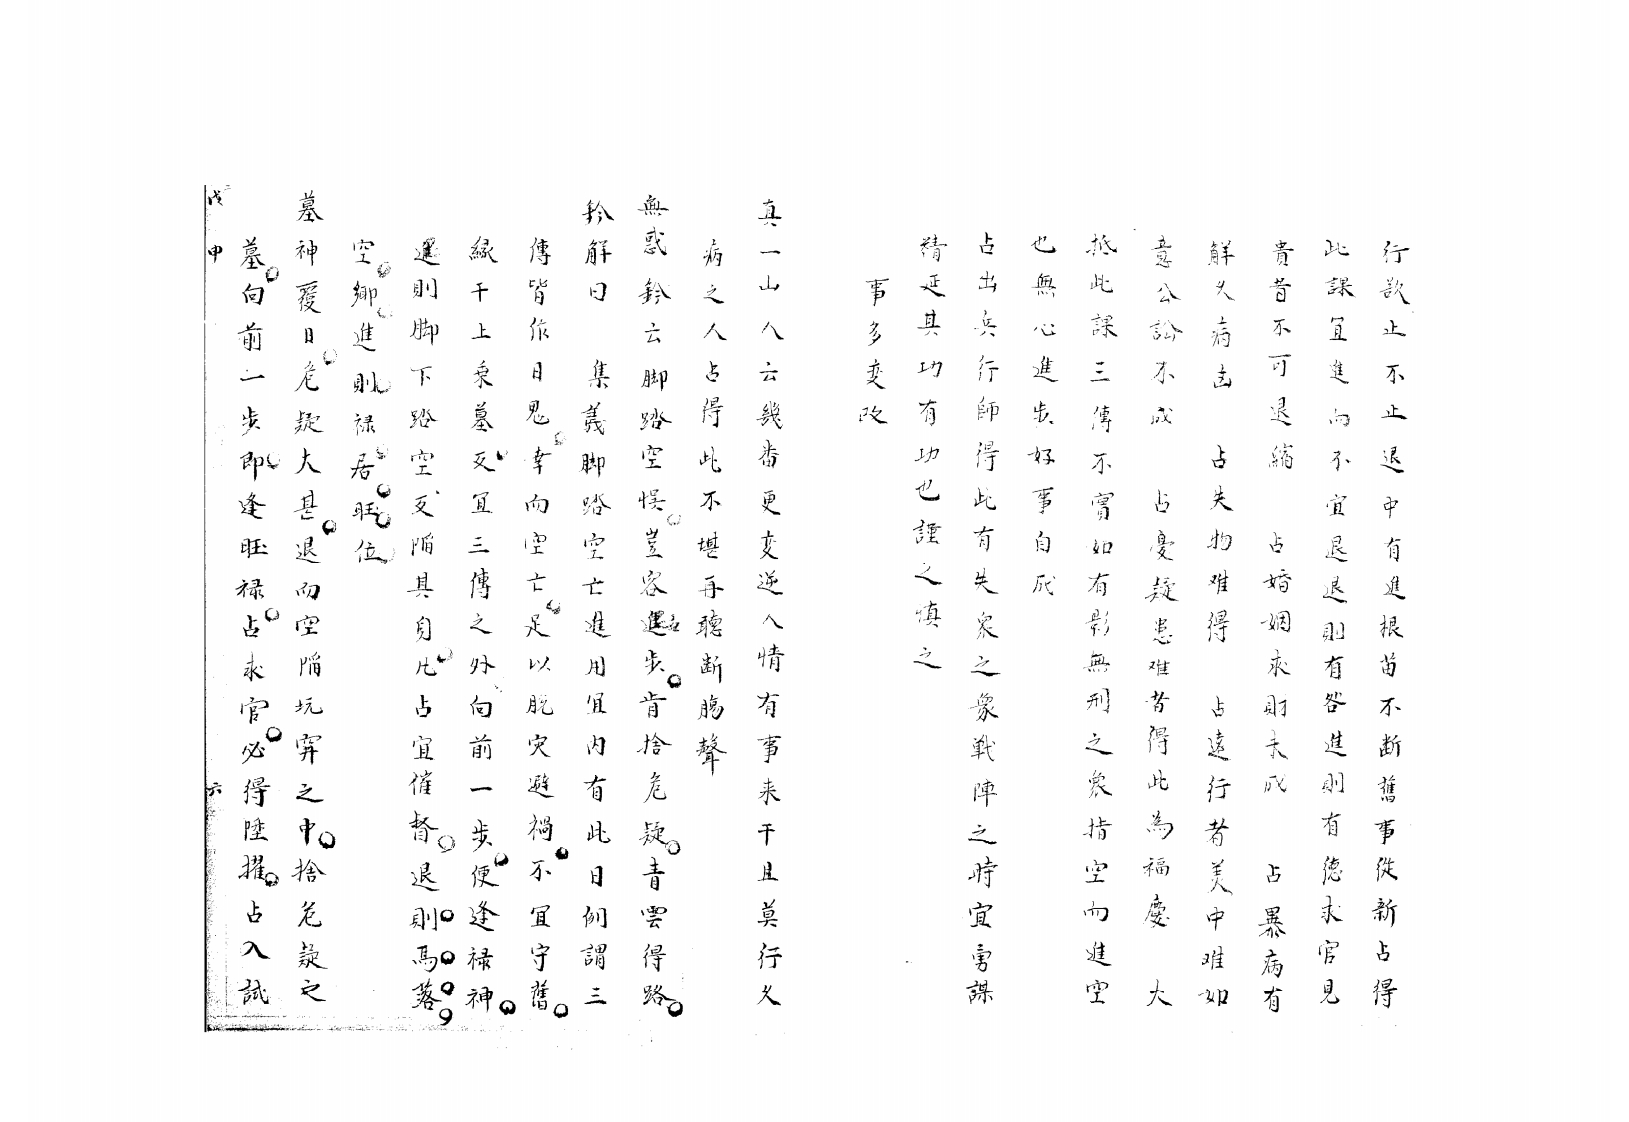 行欲止不止退中有進根苗不断舊事從新占得
此課宜進而不宜退退則有咎進則有德求官見
貴昔不可退縮　占婚姻求財未成　占暴病有
解久病凶　占失物难得　占遠行者美中难如
意公訟不成　占憂疑患难昔得此為福慶　大
抵此課三傳不實如有影無刑之象指空而進空
也無心進步好事自成
占出兵行師得此有失衆之象戰陣之時宜勇謀
精延其功有功也謹之慎之
事多变改
真一山人云幾番更变逆人情有事来干且莫行久
病之人占得此不堪再聽断腸聲
無惑鈐云脚踏空悮豈容進步肯捨危疑青雲得路
鈐解曰　集義脚踏空亡進用宜内有此日例謂三
傳皆作日鬼幸而空亡足以脱灾避禍不宜守舊
緣干上乘墓又宜三傳之外向前一步便逢禄神
退則脚下踏空又陷其身凡占宜催督退則馬落
空鄉進則禄居旺位
墓神覆日危疑大甚退而空陷坑穽之中捨危疑之
墓向前一步即逢旺禄占求官必得陞擢占入試
戊申　六